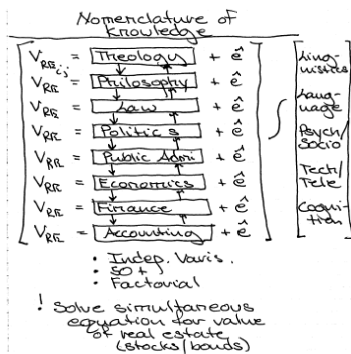 Nomenclature of
Knowledge
V RE i,j = Theology + ê
V RE = Philosophy + ê
V RE = Law + ê
V RE = Politics + ê
V RE = Public Admi + ê
V RE = Economics + ê
V RE = Finance + ê
V RE = Accounting + ê
Ling-
uistics
Lang-
uage
Psych/
Socio
Tech/
Tele
Cogni-
tion
• Indep. Varis.
• SO +
• Factorial
! Solve simultaneous
equation for value
of real estate
(stocks/bonds)